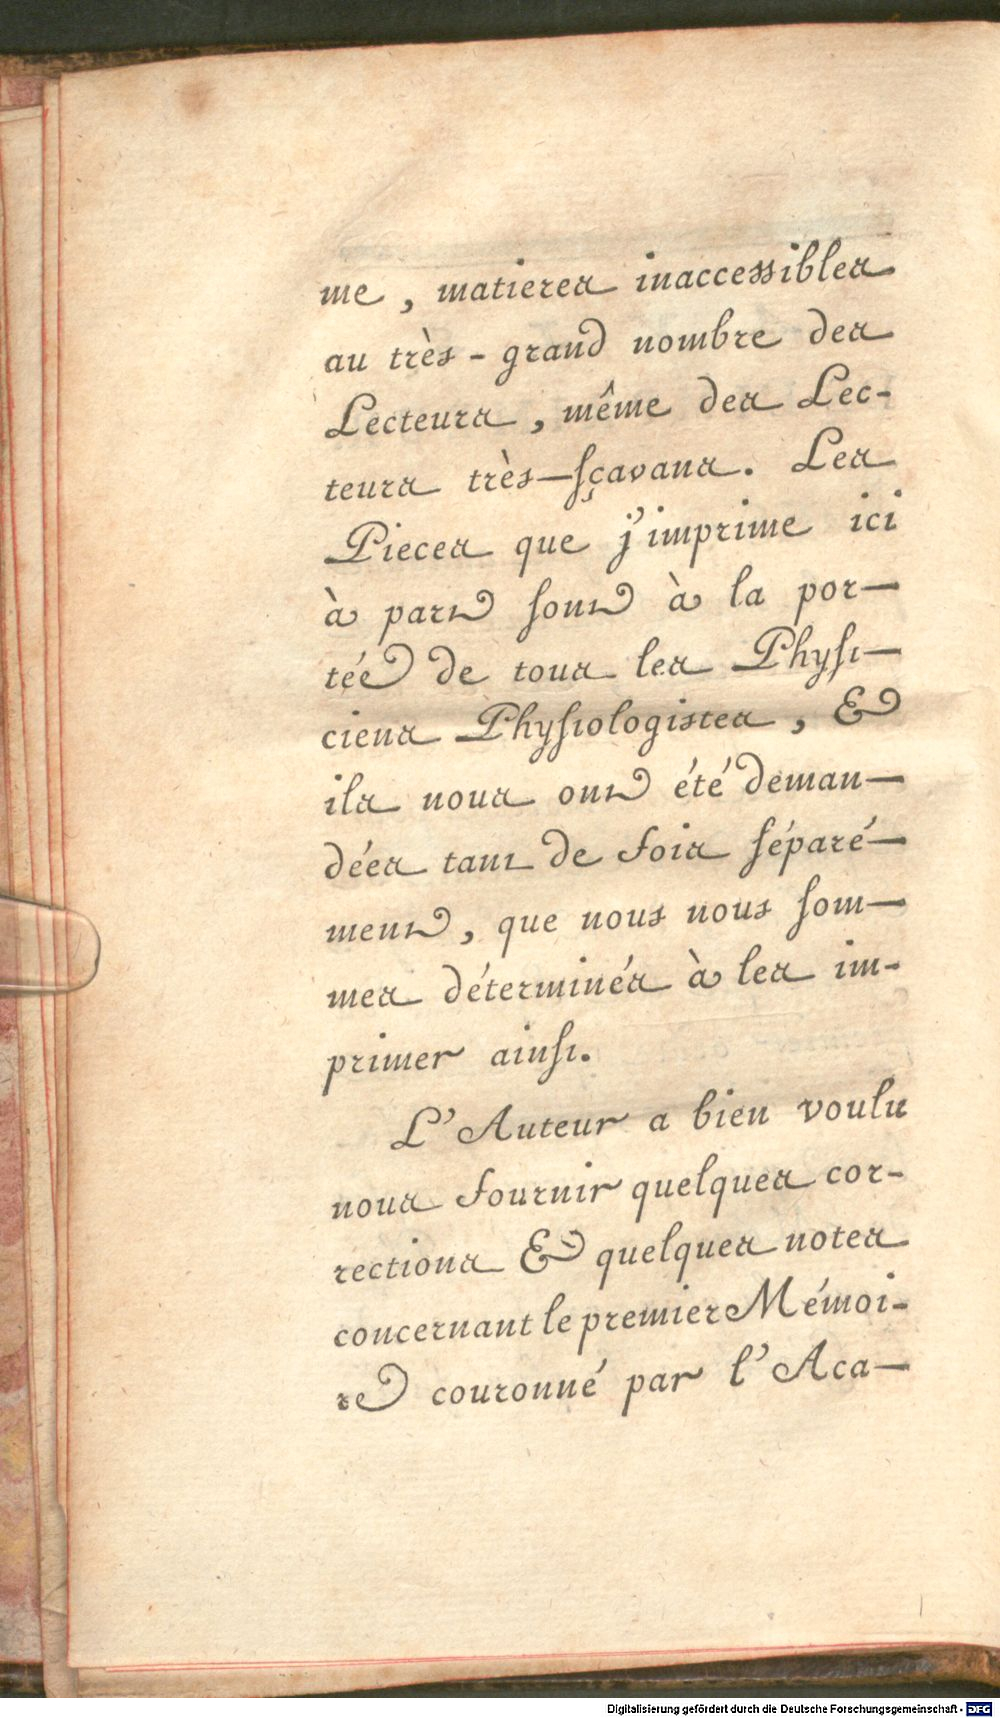 me, matieres inaccessibles
au très-grand nombre des
Lecteurs, même des Lec-
teurs très-sçavans. Les
Pieces que j'imprime ici
à part sont à la por-
tée de tous les Physi-
ciens Physiologistes, &
ils nous ont été deman-
dées tant de fois séparé-
ment, que nous nous som-
mes déterminés à les im-
primer ainsi.
L'Auteur a bien voulu
nous fournir quelques cor-
rections & quelques notes
concernant le premier Mémoi-
re couronné par l'Aca-
Digitalisierung gefördert durch die Deutsche Forschungsgemeinschaft - DFG